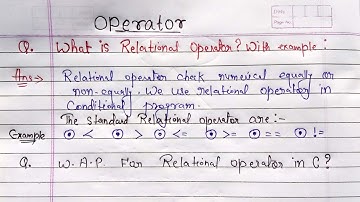 Operator
Q. What is Relational Operator? With example:
Ans→ Relational operator check numerical equally or
non-equally. We use relational operator in
Conditional program.
The standard Relational operator are:-
Example ⊙ < ⊙ > ⊙ <= ⊙ >= ⊙ == ⊙ !=
Q. W.A.P. For Relational operator in C?